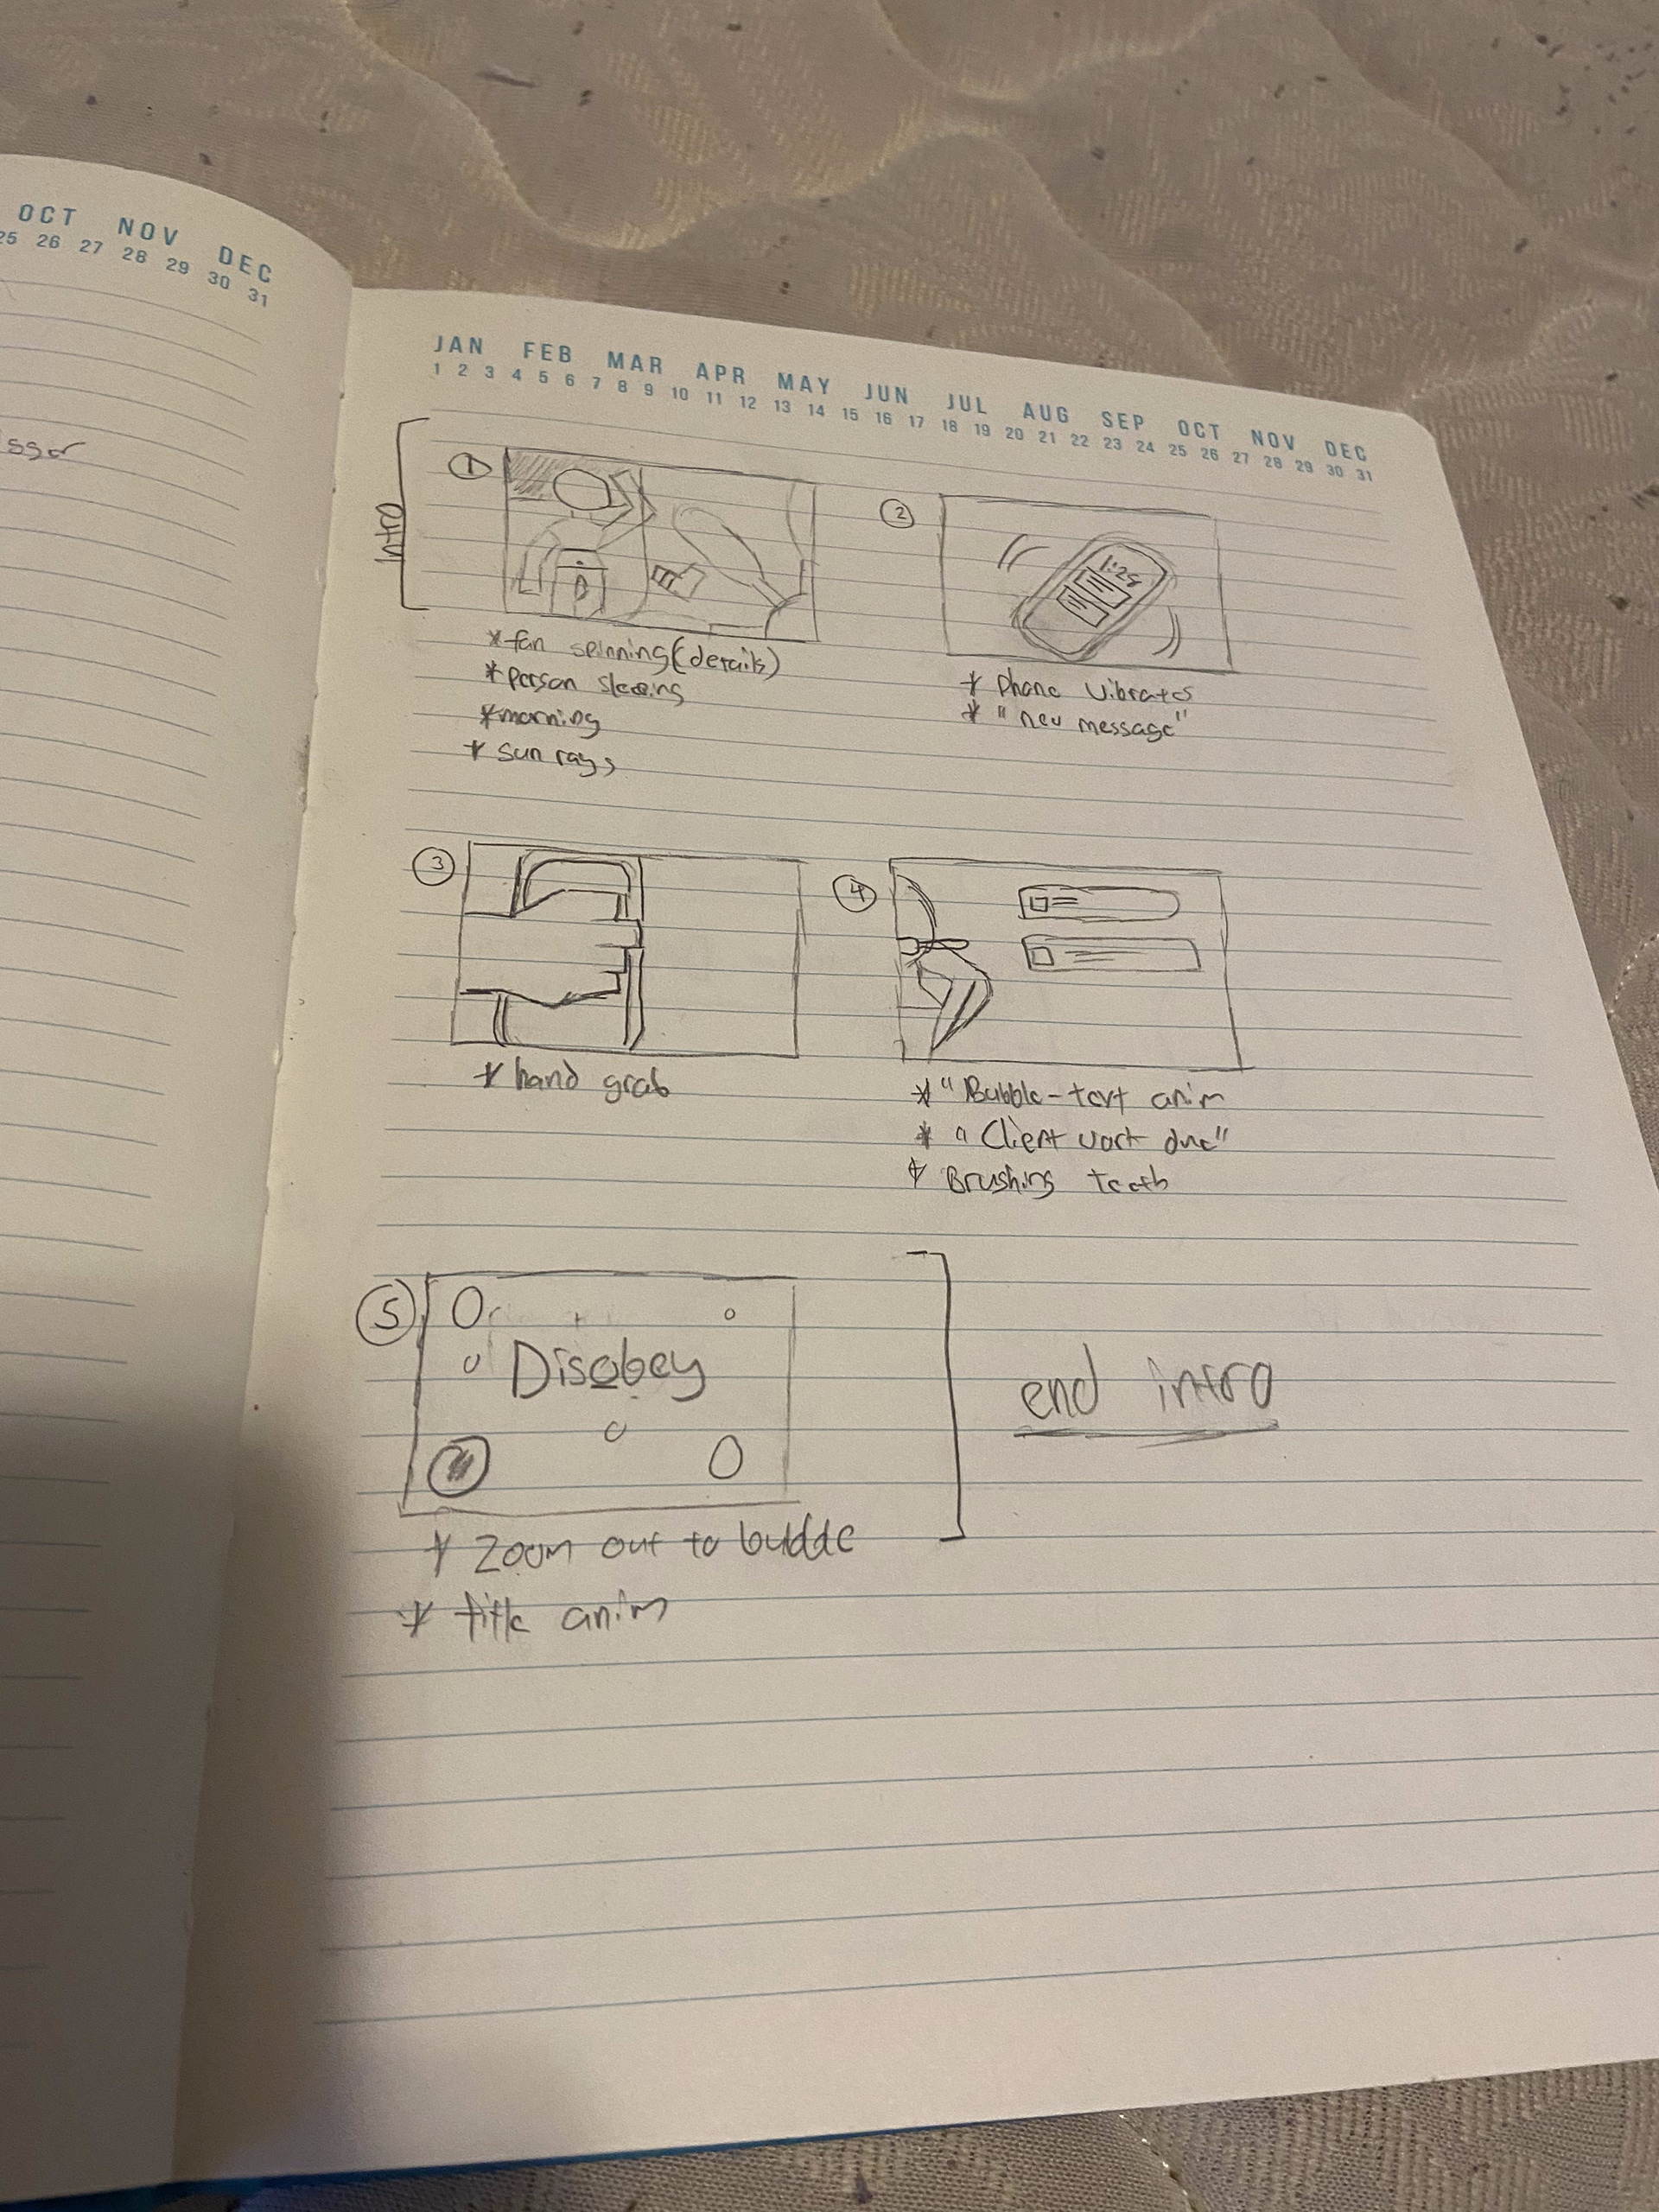 OCT NOV DEC
25 26 27 28 29 30 31
JAN FEB MAR APR MAY JUN JUL AUG SEP OCT NOV DEC
1 2 3 4 5 6 7 8 9 10 11 12 13 14 15 16 17 18 19 20 21 22 23 24 25 26 27 28 29 30 31
intro
1
* fan spinning (details)
* person sleeping
* morning
* sun rays
2
1:28
* Phone vibrates
* "new message"
3
* hand grab
4
* "Bubble-text anim
* "Client work due"
* Brushing teeth
5
Disobey
end intro
* Zoom out to bubble
* title anim